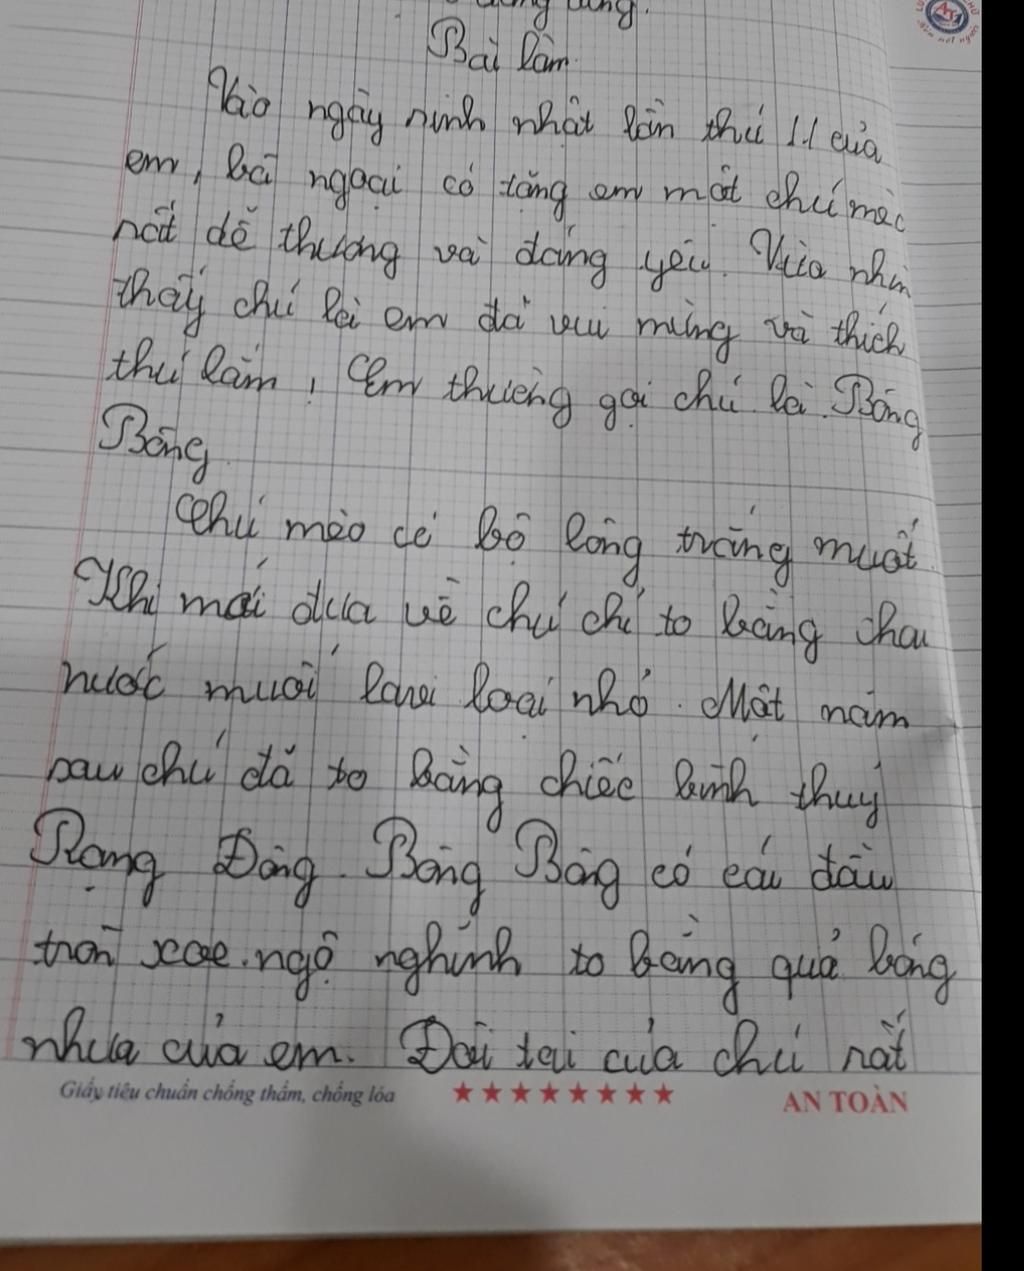 Bài làm
Vào ngày sinh nhật lần thứ 11 của
em, bà ngoại có tặng em một chú mèo
rất dễ thương và đáng yêu. Vừa nhìn
thấy chú là em đã vui mừng và thích
thú lắm, Em thường gọi chú là Bông
Bông
Chú mèo có bộ lông trắng muốt.
Khi mới đưa về chú chỉ to bằng chai
nước muối loại nhỏ. Một năm
sau chú đã to bằng chiếc bình thuỷ
Rạng Đông. Bông Bông có cái đầu
tròn xoe. ngộ nghĩnh to bằng quả bóng
nhựa của em. Đôi tai của chú rất
Giấy tiêu chuẩn chống thấm, chống lóa ★★★★★★★★ AN TOÀN